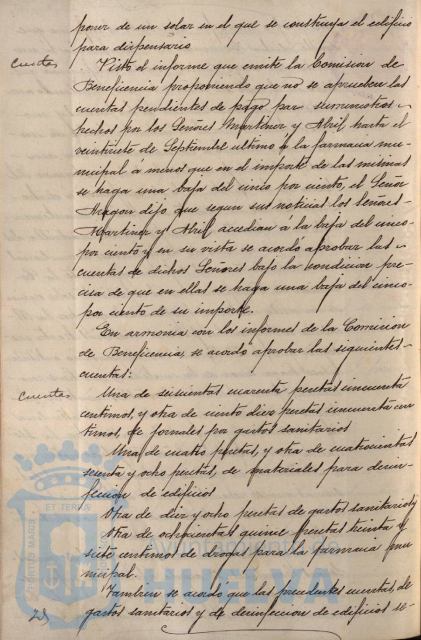 poner de un solar en el que se construya el edificio
para dispensario
Cuentas
Visto el informe que emite la Comision de
Beneficencia proponiendo que no se aprueben las
cuentas pendientes de pago por suministros
hechos por los Señores Martinez y Abril, hasta el
veintisiete de Septiembre ultimo a la farmacia mu-
nicipal á menos que en el importe de las mismas
se haga una baja del cinco por ciento, el Señor
Aragon dijo que segun sus noticias los Señores
Martinez y Abril, accedian á la baja del cinco
por ciento y en su vista se acordó aprobar las
cuentas de dichos Señores bajo la condicion pre-
cisa de que en ellas se haga una baja del cinco
por ciento de su importe.
En armonia con los informes de la Comision
de Beneficencia, se acordó aprobar las siguientes
cuentas:
Cuentas
Una de seiscientas cuarenta pesetas cincuenta
centimos, y otra de ciento diez pesetas cincuenta cen
timos, de jornales por gastos sanitarios
Una de cuatro pesetas, y otra de cuatrocientas
sesenta y ocho pesetas, de materiales para desin-
feccion de edificios
Otra de diez y ocho pesetas de gastos sanitarios y
Otra de ochocientas quince pesetas treinta y
siete centimos de drogas para la farmacia mu
nicipal.
Tambien se acordó que las precedentes cuentas de
gastos sanitarios y de desinfeccion de edificios se-
ET TERRAE
PORTUS MARIS
HUELVA